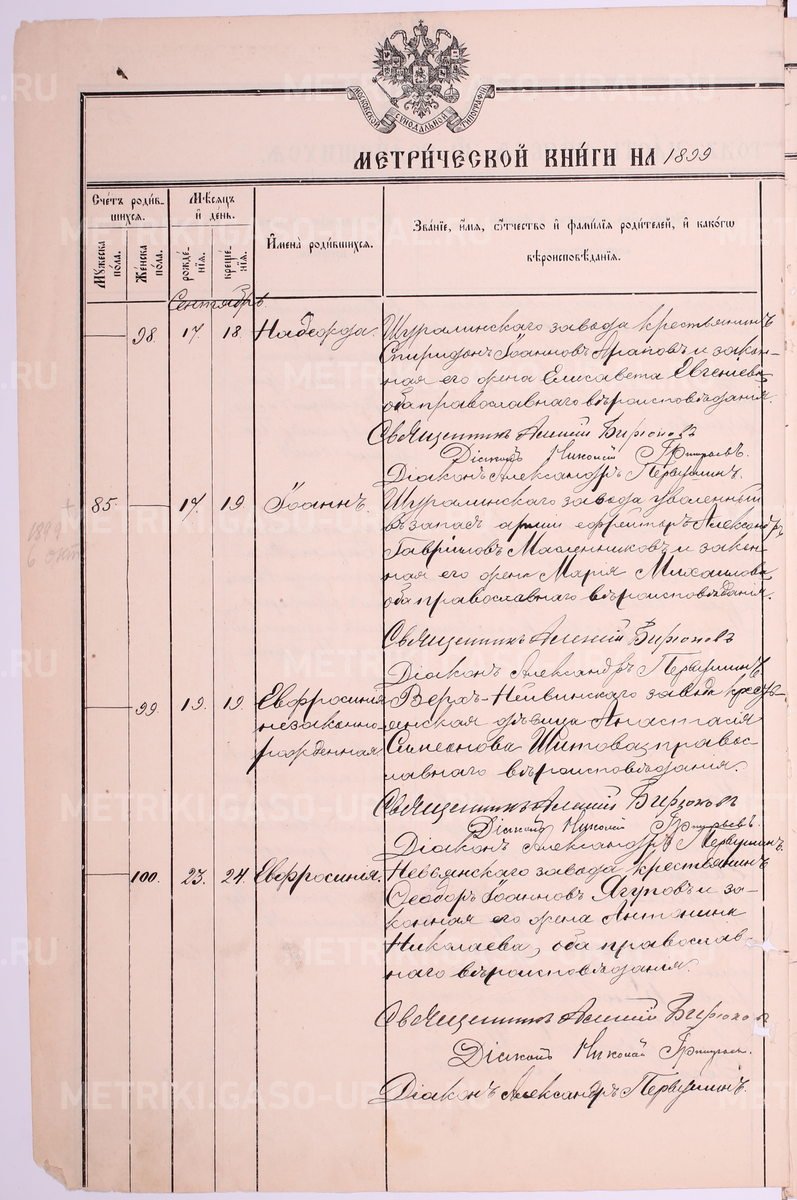 МОСКОВСКОЙ СѴНОДАЛЬНОЙ ТИПОГРАФІИ
МЕТРИ́ЧЕСКОЙ КНИ́ГИ НА 1899
Сче́тъ роди́в-
шихся.
Му́жеска по́ла.
Же́нска по́ла.
Мѣ́сяцъ
и҆ де́нь.
рожде́-
нїя.
креще́-
нїя.
И҆мена̀ роди́вшихся.
Зва́нїе, и҆́мя, ѻ҆́тчество и҆ фами́лїя роди́телей, и҆ како́гѡ
вѣроисповѣ́данїя.
Сентябрь
98. 17. 18. Надежда.
Шуралинскаго завода крестьянинъ
Спиридонъ Іоанновъ Араповъ и закон-
ная его жена Елисавета Евгениева,
оба православнаго вѣроисповѣданія.
Священникъ Алексій Бирюковъ
Діаконъ Николай Григорьевъ.
Діаконъ Александръ Первушинъ.
85. 17. 19. Іоаннъ.
Шуралинскаго завода уволенный
въ запасъ арміи ефрейторъ Александръ
Гавріиловъ Масленниковъ и закон-
ная его жена Марія Михаилова,
оба православнаго вѣроисповѣданія.
Священникъ Алексій Бирюковъ
Діаконъ Александръ Первушинъ.
1899
6 окт
99. 19. 19. Евфросинія
незаконно-
рожденная
Верхъ-Нейвинскаго завода кресть-
янская дѣвица Анастасія
Симеонова Шитова, правос-
лавнаго вѣроисповѣданія.
Священникъ Алексій Бирюковъ
Діаконъ Николай Григорьевъ.
Діаконъ Александръ Первушинъ.
100. 23. 24. Евфросинія.
Невьянскаго завода крестьянинъ
Ѳеодоръ Іоанновъ Ягуповъ и за-
конная его жена Антонина
Николаева, оба православ-
наго вѣроисповѣданія.
Священникъ Алексій Бирюковъ
Діаконъ Николай Григорьевъ.
Діаконъ Александръ Первушинъ.
METRIKI.GASO-URAL.RU